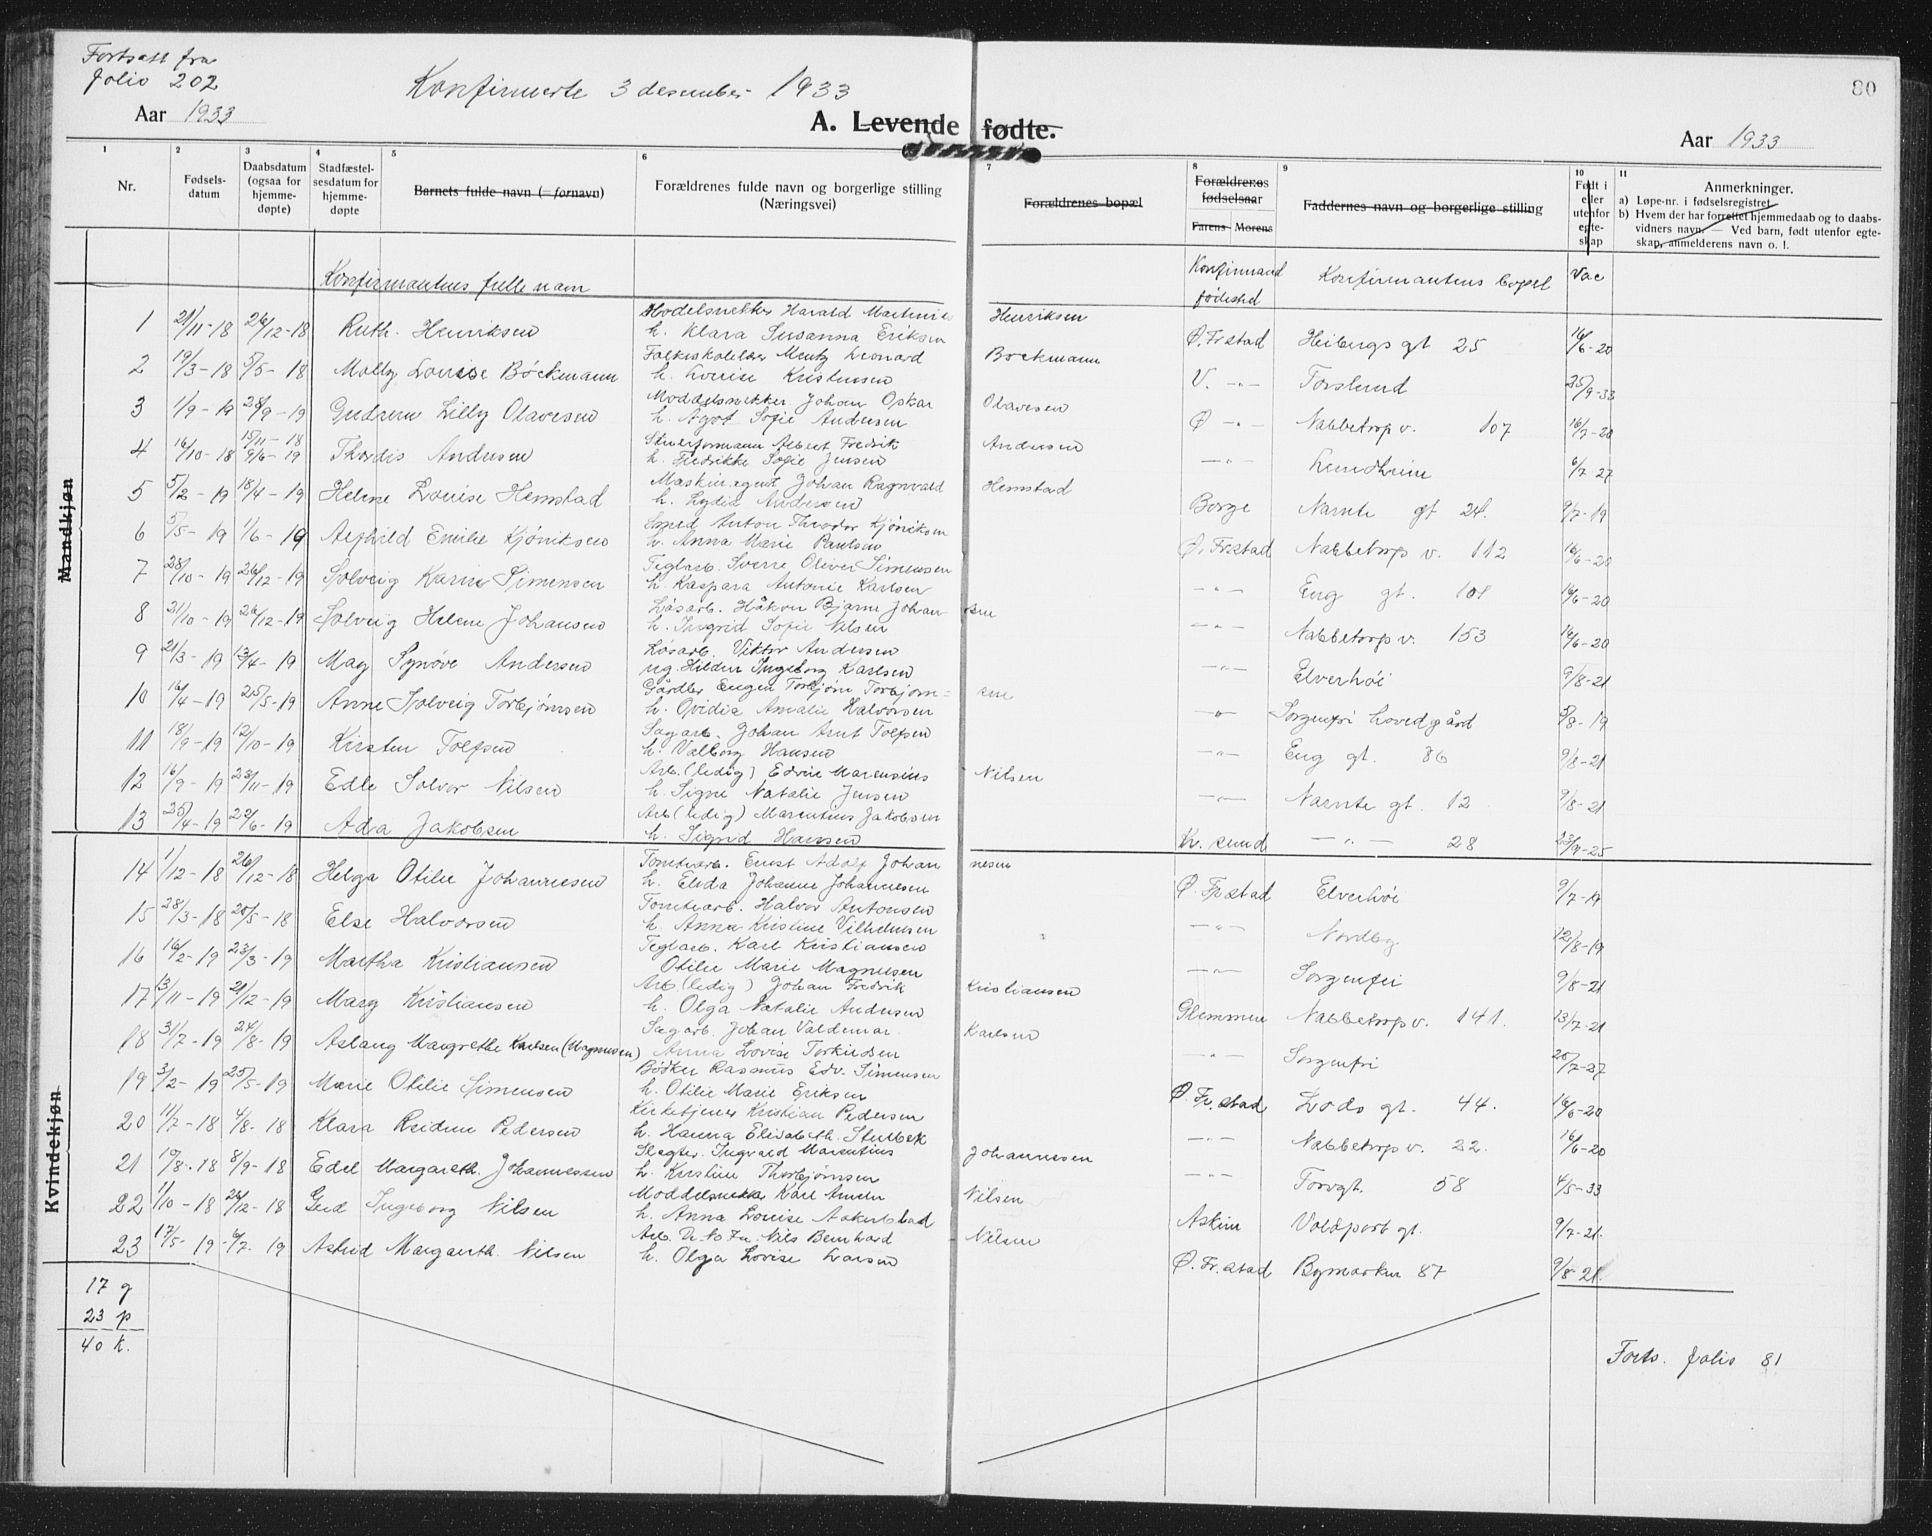 Fortsatt fra
folio 202
Konfirmerte 3 desember 1933
80
Aar 1933
A. Levende fødte.
Aar 1933
1 2 3 4 5 6 7 8 9 10 11
Nr.
Fødsels-
datum
Daabsdatum
(ogsaa for
hjemme-
døpte)
Stadfæstel-
sesdatum for
hjemme-
døpte
Barnets fulde navn (= fornavn)
Forældrenes fulde navn og borgerlige stilling
(Næringsvei)
Forældrenes bopæl
Forældrenes
fødselsaar
Farens Morens
Faddernes navn og borgerlige stilling
Født i
eller
utenfor
egte-
skap
Anmerkninger.
a) Løpe-nr. i fødselsregistret
b) Hvem der har forrettet hjemmedaab og to daabs-
vidners navn. — Ved barn, født utenfor egte-
skap, anmelderens navn o. l.
Konfirmantens fulle navn
Konfirmand
fødested
Konfirmantens bopel
Vac
Mandkjøn
Modelsnekker Harald Martinius Henriksen
1 21/11-18 26/12-18 Ruth Henriksen h. Klara Susanna Eriksen Ø. Fr.stad Heibergs gt 25 16/6-20
Folkeskolelær Mentz Leonard Bøckmann
2 19/3-18 5/5-18 Molly Louise Bøckmann h. Lovise Kristensen V. -"- Torslund 25/9-33
Moddelsnekker Johan Oskar Olavesen
3 1/9-19 28/9-19 Gudrun Lilly Olavesen h. Agot Sofie Andersen Ø -"- Nabbetorp v. 107 16/7-20
15/11-18 Albert Fredrik Andersen
4 16/10-18 9/6-19 Thordis Andersen h. Fredrikke Sofie Jensen -"- Lundheim 6/7-27
Maskin.agent Johan Ragnvald Hemstad
5 5/2-19 18/4-19 Helene Louise Hemstad h. Lydia Andersen Borge Narnte gt 24. 9/7-19
Smed Anton Theodor Kjøniksen
6 5/5-19 1/6-19 Emilie Kjøniksen h. Anna Marie Paulsen Ø. Fr.stad Nabbetorp v. 112 16/6-20
Teglarb. Sverre Oliver Simensen
7 28/10-19 26/12-19 Solveig Karin Simensen h. Kaspara Antonie Karlsen -"- Eng gt. 101 16/6-20
Løsarb. Håkon Bjarne Johansen
8 21/10-19 26/12-19 Solveig Helene Johansen h. Ingrid Sofie Nilsen -"- Nabbetorp v. 153 16/6-20
Løsarb. Viktor Andersen
9 21/3-19 13/4-19 May Synøve Andersen ug. Hilda Ingeborg Karlsen -"- Elverhøi 9/8-21
Gårdbr Eugen Torbjørn Torbjørnsen
10 16/4-19 25/5-19 Anne Solveig Torbjørnsen h. Ovidia Amalie Halvorsen -"- Sorgenfri hovedgård 3/8-19
Sagarb. Johan Arnt Tolfsen
11 18/9-19 12/10-19 Kirsten Tolfsen h. Valborg Hansen -"- Eng gt. 86 9/8-21
Arb. (ledig) Edvin Marensius Nilsen
12 16/9-19 23/11-19 Edle Solvor Nilsen h. Signe Natalie Jensen -"- Narnte gt. 12 9/8-21
Arb (ledig) Marentius Jakobsen
13 25/4-19 22/6-19 Ada Jakobsen h. Sigrid Hansen Kr. sund -"- 28 23/9-25
Kvindekjøn
Tomtearb. Ernst Adolf Johannesen
14 1/12-18 26/12-18 Helga Otilie Johannesen h. Elida Johanne Johannesen Ø. Fr.stad Elverhøi 9/7-19
Tomtearb. Halvor Antonsen
15 28/3-18 20/5-18 Else Halvorsen h. Anna Kristine Vilhelmsen -"- Nordby 12/8-19
Teglarb. Karl Kristiansen
16 16/2-19 23/3-19 Martha Kristiansen Otilie Marie Magnussen -"- Sorgenfri 9/8-21
Arb (ledig) Johan Fredrik Kristiansen
17 13/11-19 21/12-19 Mary Kristiansen h. Olga Natalie Andersen Glemmen Nabbetorp v. 141. 13/7-21
Sagarb. Johan Valdemar Karlsen
18 31/7-19 24/8-19 Aslaug Margrethe Karlsen (Magnussen) Anna Lovise Torkildsen -"- Sorgenfri 20/7-27
Bødker Rasmus Edv. Simensen
19 3/2-19 25/5-19 Marie Otilie Simensen h. Otilie Marie Eriksen Ø. Fr.stad Lods gt. 44. 16/6-20
Kirketjener Kristian Pedersen
20 11/7-18 4/8-18 Klara Reidun Pedersen h. Hanna Elisabeth Stubek -"- Nabbetorp v. 22. 16/6-20
Slegter. Ingvald Marentius Johannesen
21 10/8-18 8/9-18 Edel Margareth. Johannessen h. Kristine Thorbjørnsen -"- Torvgt. 58 4/5-33
Moddelsnekker Karl Anton Nilsen
22 1/10-18 26/12-18 Gerd Ingeborg Nilsen h. Anna Lovise Aakerblad Askim Voldport gt. 9/7-21.
Arb. Nils Bernhard Nilsen
23 17/5-19 6/7-19 Astrid Margareth. Nilsen h. Olga Lovise Larsen Ø. Fr.stad Bymarken 87 9/8-21.
17 g
23 p
40 k.
Forts. folio 81